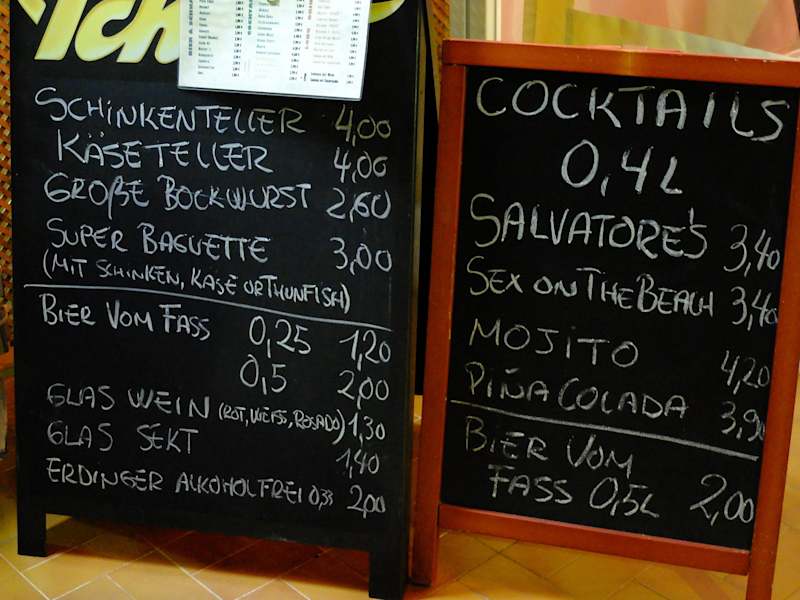 SCHINKENTELLER 4,00
KÄSETELLER 4,00
GROßE BOCKWURST 2,60
SUPER BAGUETTE 3,00
(MIT SCHINKEN, KÄSE OR THUNFISH)
BIER VOM FASS 0,25 1,20
0,5 2,00
GLAS WEIN (ROT, WEISS, ROSADO) 1,30
GLAS SEKT 1,40
ERDINGER ALKOHOLFREI 0,33 2,00
COCKTAILS
0,4L
SALVATORE'S 3,40
SEX ON THE BEACH 3,40
MOJITO 4,20
PIÑA COLADA 3,90
BIER VOM
FASS 0,5L 2,00